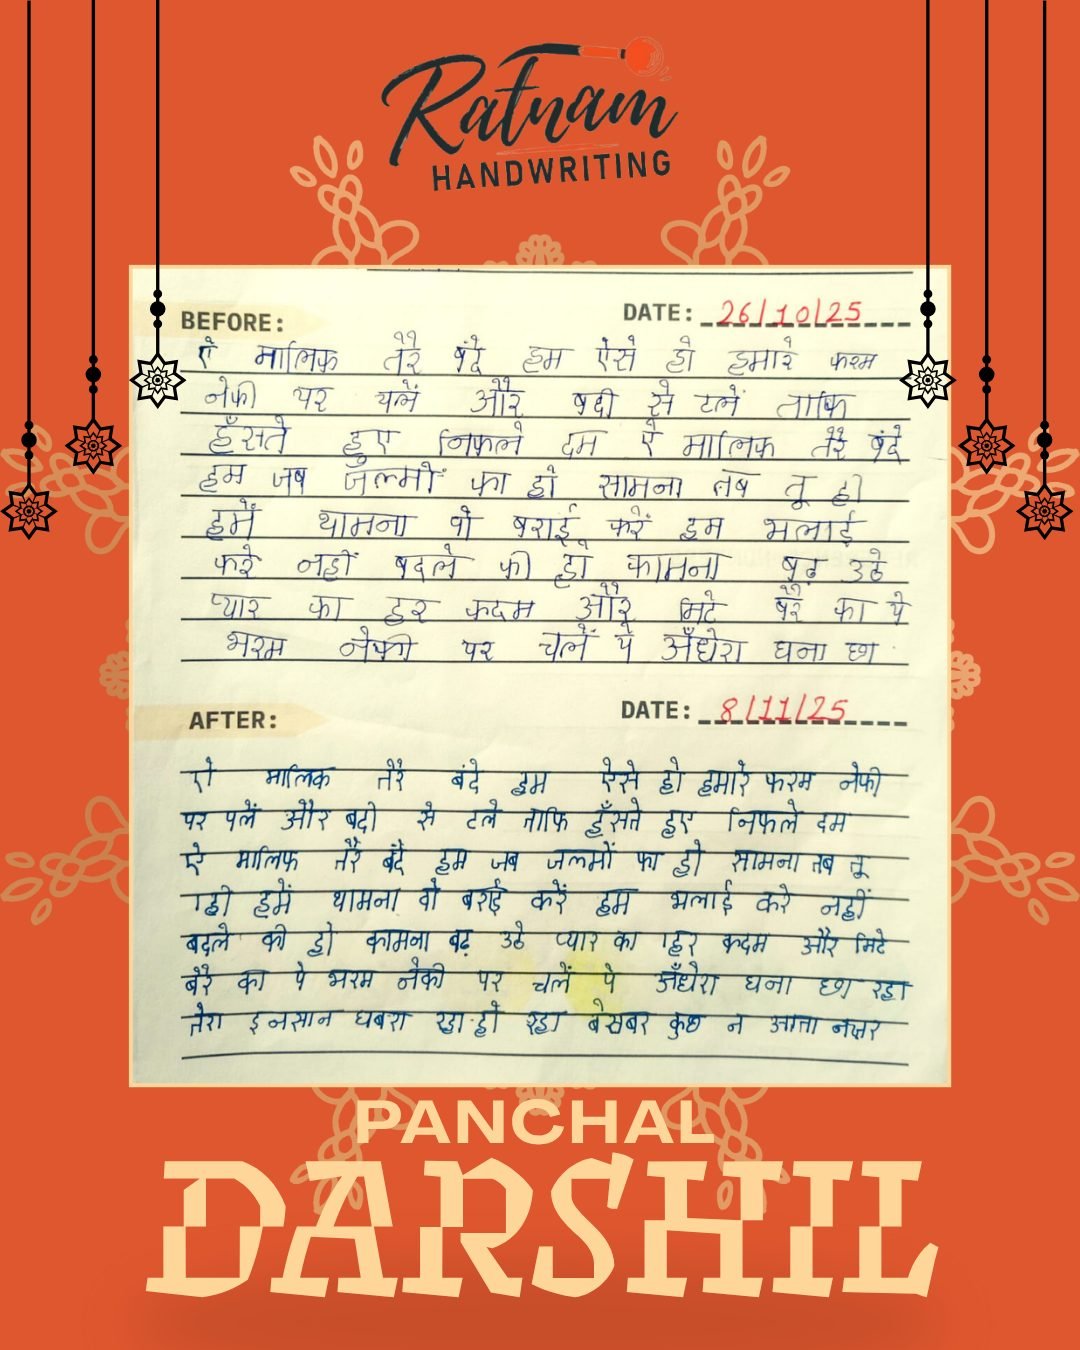 Ratnam
HANDWRITING
BEFORE:
DATE: 26/10/25
ऐ मालिक तेरे बंदे हम ऐसे हो हमारे करम
नेकी पर चलें और बदी से टलें ताकि
हँसते हुए निकले दम ऐ मालिक तेरे बंदे
हम जब जल्मों का हो सामना तब तू ही
हमें थामना वो बराई करें हम भलाई
करे नहीं बदले की हो कामना बढ़ उठे
प्यार का हर कदम और मिटे बैर का ये
भरम नेकी पर चलें ये अँधेरा घना छा
AFTER:
DATE: 8/11/25
ऐ मालिक तेरे बंदे हम ऐसे हो हमारे करम नेकी
पर चलें और बदी से टले ताकि हँसते हुए निकले दम
ऐ मालिक तेरे बंदे हम जब जलमों का हो सामना तब तू
हमें थामना वो बराई करें हम भलाई करे नहीं
बदले की हो कामना बढ़ उठे प्यार का हर कदम और मिटे
बैरे का ये भरम नेकी पर चलें ये अँधेरा घना छा रहा
तेरा इनसान घबरा रहा हो रहा बेखबर कुछ न आता नज़र
PANCHAL
DARSHIL